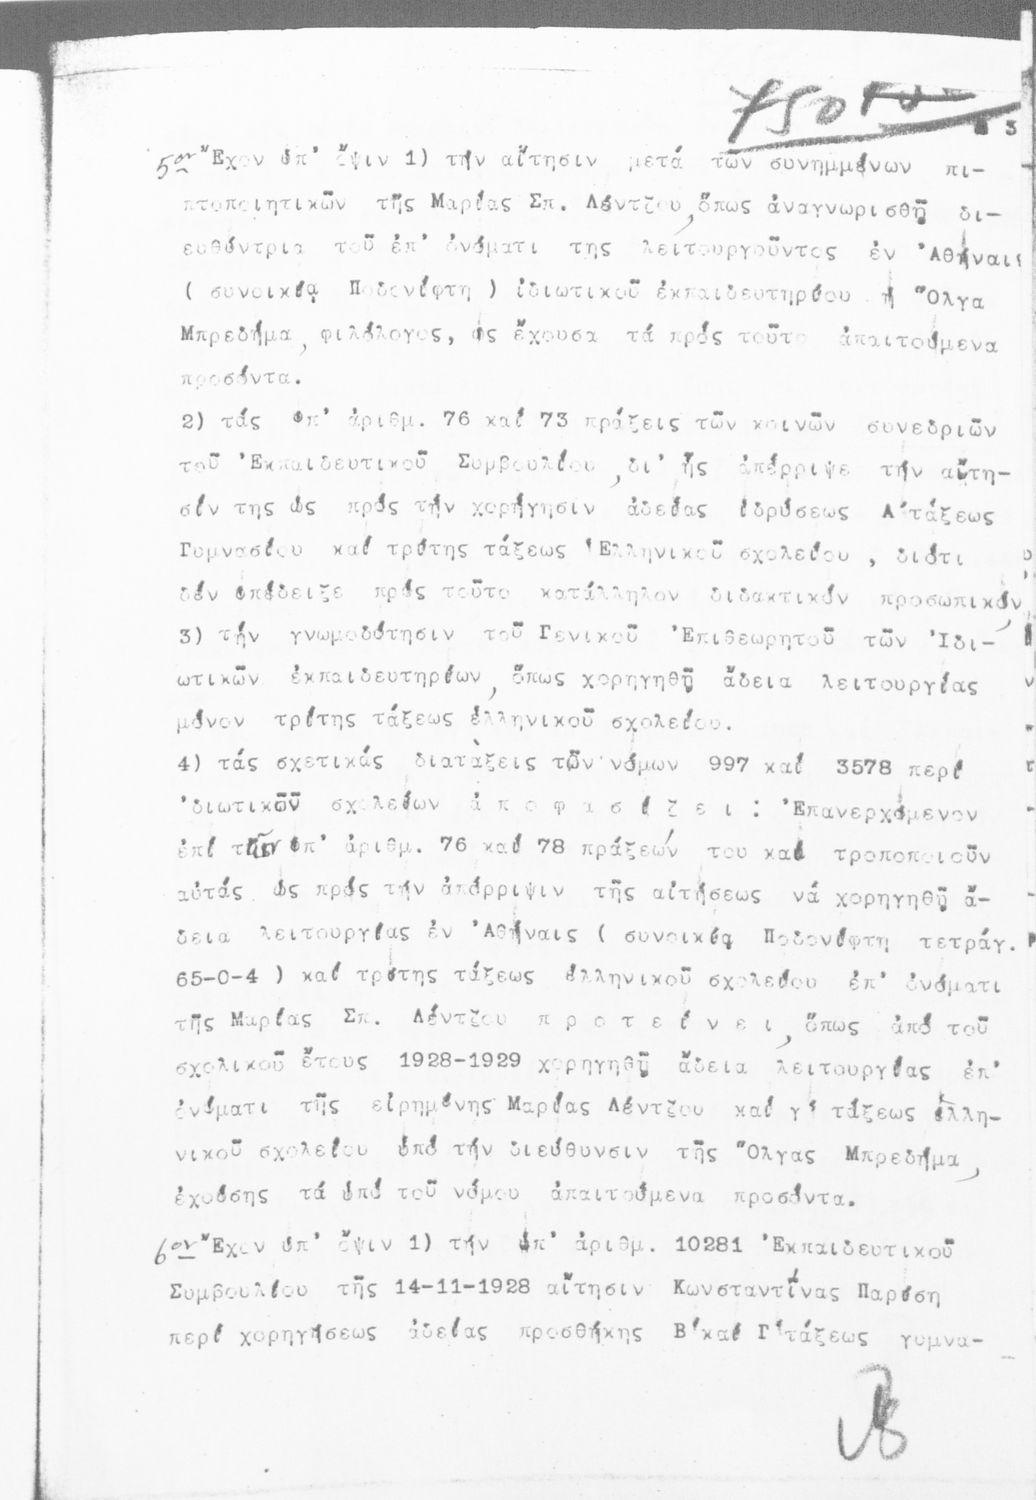 750
3
5ον Ἔχον ὑπ' ὄψιν 1) τήν αἴτησιν μετά τῶν συνημμένων πι-
πτοποιητικῶν τῆς Μαρίας Σπ. Λέντζου, ὅπως ἀναγνωρισθῇ δι-
ευθύντρια τοῦ ἐπ' ὀνόματι της λειτουργοῦντος ἐν Ἀθήναις
( συνοικίᾳ Ποδονίφτη ) ἰδιωτικοῦ ἐκπαιδευτηρίου ἡ Ὄλγα
Μπρεδήμα, φιλόλογος, ὡς ἔχουσα τά πρός τοῦτο ἀπαιτούμενα
προσόντα.
2) τάς ὑπ' ἀριθμ. 76 καί 73 πράξεις τῶν κοινῶν συνεδριῶν
τοῦ Ἐκπαιδευτικοῦ Συμβουλίου, δι' ἧς ἀπέρριψε τήν αἴτη-
σίν της ὡς πρός τήν χορήγησιν ἀδείας ἱδρύσεως Α' τάξεως
Γυμνασίου καί τρίτης τάξεως Ἑλληνικοῦ σχολείου , διότι
δέν ὑπέδειξε πρός τοῦτο κατάλληλον διδακτικόν προσωπικόν,
3) τήν γνωμοδότησιν τοῦ Γενικοῦ Ἐπιθεωρητοῦ τῶν Ἰδι-
ωτικῶν ἐκπαιδευτηρίων, ὅπως χορηγηθῇ ἄδεια λειτουργίας
μόνον τρίτης τάξεως ἑλληνικοῦ σχολείου.
4) τάς σχετικάς διατάξεις τῶν νόμων 997 καί 3578 περί
'διωτικῶν σχολείων ἀ π ο φ α σ ί ζ ε ι : Ἐπανερχόμενον
ἐπί τῶν ὑπ' ἀριθμ. 76 καί 78 πράξεών του καί τροποποιοῦν
αὐτάς ὡς πρός τήν ἀπόρριψιν τῆς αἰτήσεως νά χορηγηθῇ ἄ-
δεια λειτουργίας ἐν Ἀθήναις ( συνοικίᾳ Ποδονίφτη τετράγ.
65-0-4 ) καί τρίτης τάξεως ἑλληνικοῦ σχολείου ἐπ' ὀνόματι
τῆς Μαρίας Σπ. Λέντζου π ρ ο τ ε ί ν ε ι, ὅπως ἀπό τοῦ
σχολικοῦ ἔτους 1928-1929 χορηγηθῇ ἄδεια λειτουργίας ἐπ'
ὀνόματι τῆς εἰρημένης Μαρίας Λέντζου καί γ' τάξεως ἑλλη-
νικοῦ σχολείου ὑπό τήν διεύθυνσιν τῆς Ὄλγας Μπρεδήμα,
ἐχούσης τά ὑπό τοῦ νόμου ἀπαιτούμενα προσόντα.
6ον Ἔχον ὑπ' ὄψιν 1) τήν ὑπ' ἀριθμ. 10281 Ἐκπαιδευτικοῦ
Συμβουλίου τῆς 14-11-1928 αἴτησιν Κωνσταντίνας Παρίση
περί χορηγήσεως ἀδείας προσθήκης Β' καί Γ' τάξεως γυμνα-